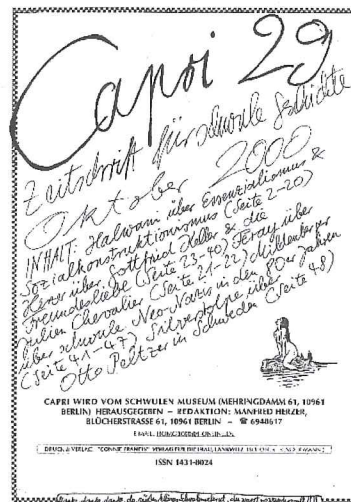 Capri 29
Zeitschrift für schwule Geschichte
Oktober 2000
INHALT: Halwani über Essenzialismus &
Sozialkonstruktionismus (Seite 2-20)
Herzer über Gottfried Keller & die
Freundesliebe (Seite 23-40) Feray über
Julien Chevalier (Seite 21-22) Mildenberger
über schwule Neo-Nazis in den 80er Jahren
(Seite 41-47) Silverstolpe über
Otto Peltzer in Schweden (Seite 48)
CAPRI WIRD VOM SCHWULEN MUSEUM (MEHRINGDAMM 61, 10961
BERLIN) HERAUSGEGEBEN – REDAKTION: MANFRED HERZER,
BLÜCHERSTRASSE 61, 10961 BERLIN – ☎ 6948617
EMAIL:
DRUCK & VERLAG:
ISSN 1431-8024